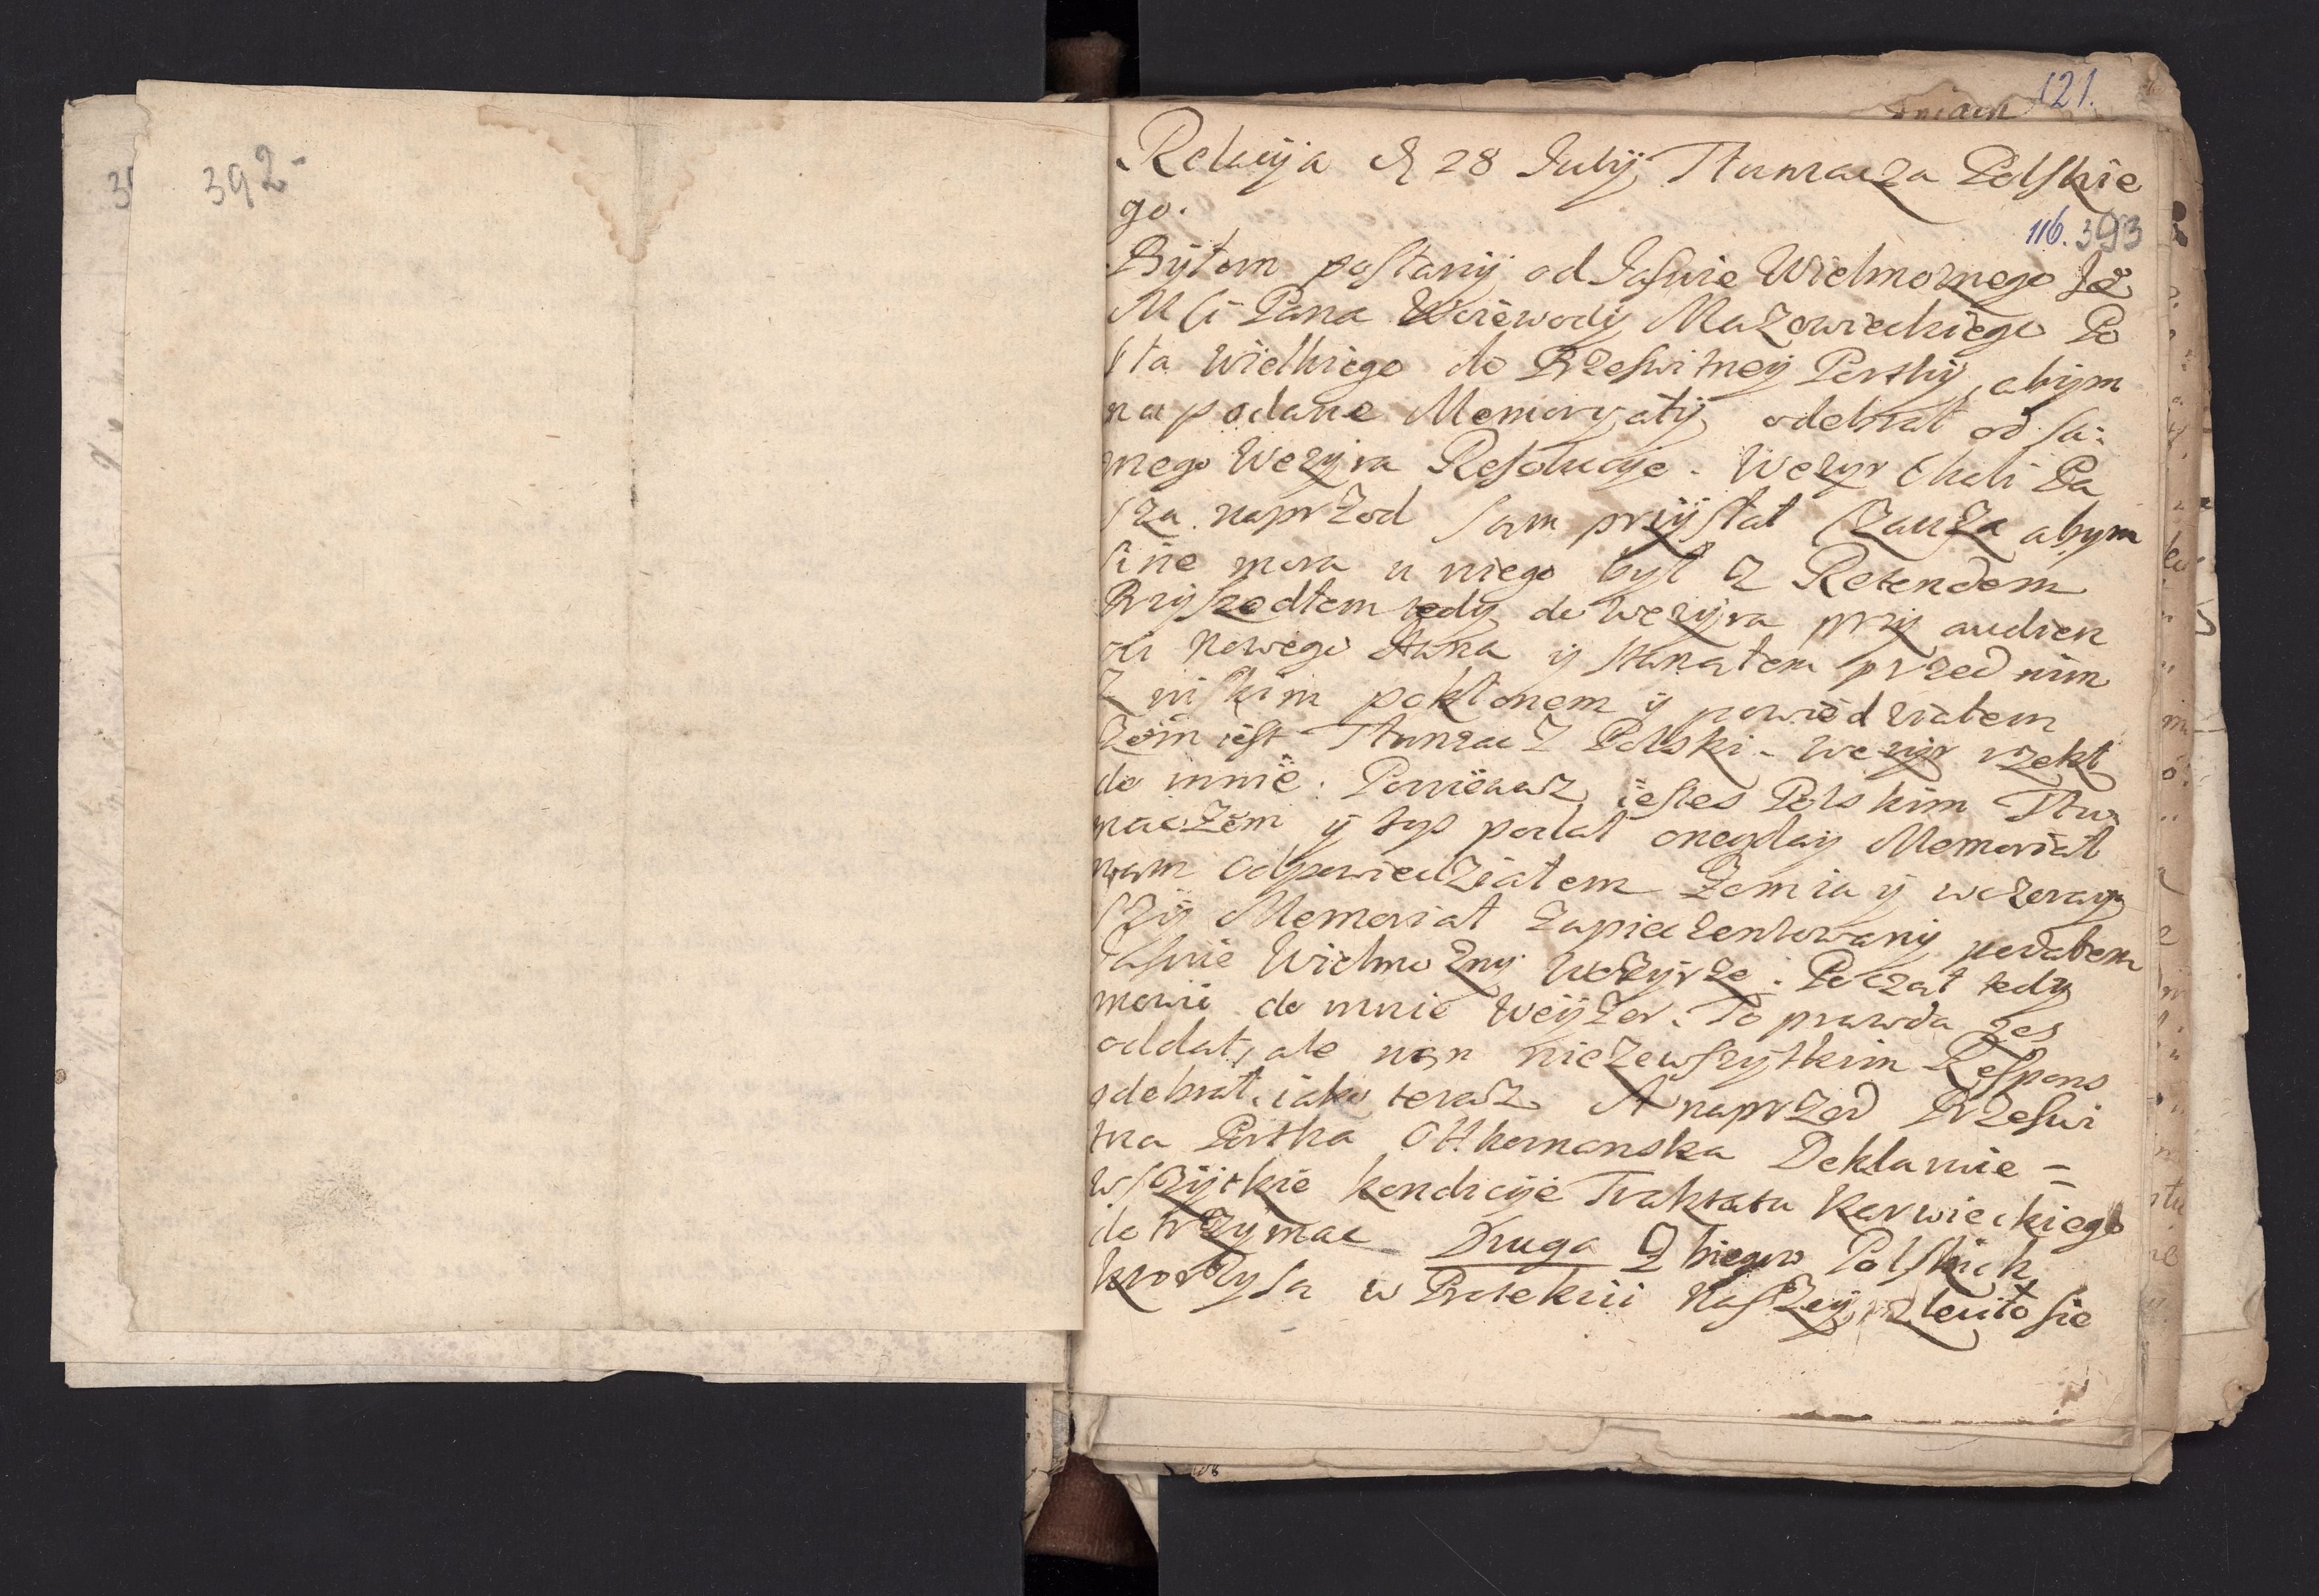 392-
121.
Relacyja d 28 Julij Tłumacza Polskie
go.
116. 393
Byłem posłany od Jasnie Wielmoznego Je
Mści Pana Woiewody Mazowieckiego Po
sła Wielkiego do Przeswitney Porthy, abym
na podane Memoryały odebrał od sa:
mego Wezyra Resolucyje. Wezyr Chali Ba
sza naprzod sam przysłał Czausza abym
sine mora u niego był z Relendem
Przyszedłem tedy do Wezyra przy audien
cii nowego Hana y stanąłem przed nim
z niskim pokłonem y powiedziałem
Zem iest Tłumacz Polski. Wezyr rzekł
do mnie. Poniewasz iestes Polskim Tłu
maczem y tys podał onegday Memoriał
nam odpowiedziałem Zem ia y wczoray
szy Memoriał zapieczentowany podałem
Jasnie Wielmozny Wezyrze. Począł tedy
mowic do mnie Weyzer. To prawda zes
oddał, ale nan niezewszytkim Respons
odebrał. iako terasz. A naprzod Przeswi
tna Portha Otthomanska Deklaruie =
wszytkie kondicyje Traktatu Karwieckiego
dotrzymac Druga Zbiegow Polskich
ktorzy sa w Protekcii naszey, zleciło sie